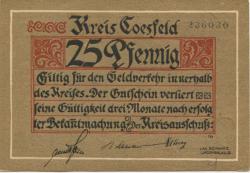 Kreis Coesfeld
236030
25 Pfennig
Gültig für den Geldverkehr innerhalb
des Kreises. Der Gutschein verliert
seine Gültigkeit drei Monate nach erfolg
ter Bekanntmachung. Der Kreisausschuß: